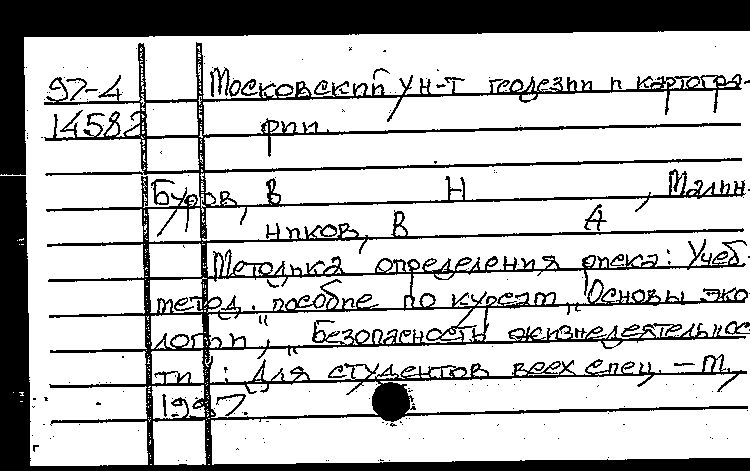 97-4 Московский ун-т геодезии и картогра-
14582 фии.
Буров, В Н , Малин-
ников, В А
Методика определения риска: Учеб.-
метод. пособие по курсам „Основы эко-
логии", „Безопасность жизнедеятельнос-
ти": Для студентов всех спец. – М.,
1997.